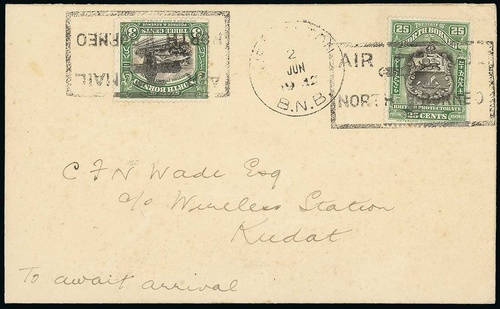 THREE CENTS
NORTH BORNEO
AIR MAIL
NORTH BORNEO
2
JUN
B.N.B.
25 25
NORTH BORNEO
BRITISH PROTECTORATE
25 CENTS
AIR
NORTH BORNEO
C F N Wade Esq
c/o Wireless Station
Kudat
To await arrival